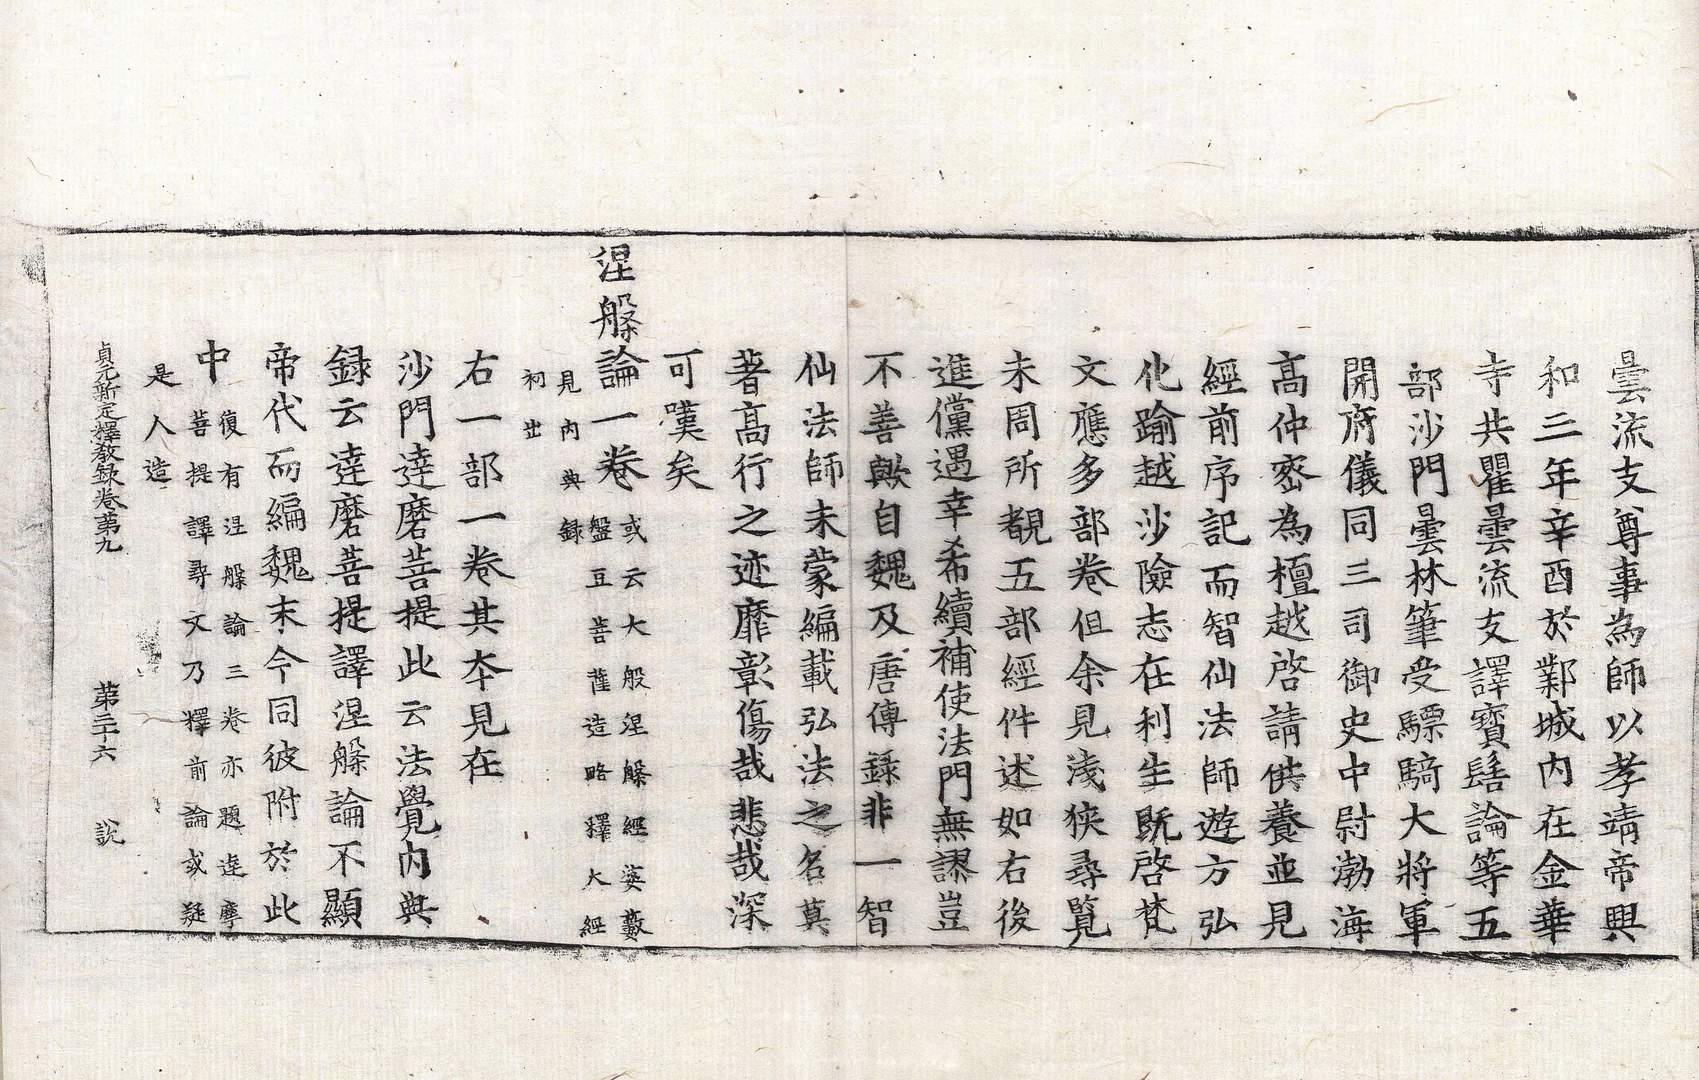 曇流支尊事為師以孝靖帝興
和三年辛酉於鄴城內在金華
寺共瞿曇流支譯寶髻論等五
部沙門曇林筆受驃騎大將軍
開府儀同三司御史中尉渤海
高仲密為檀越啓請供養並見
經前序記而智仙法師遊方弘
化踰越沙險志在利生既啓梵
文應多部卷但余見淺狹尋覧
未周所覩五部經件述如右後
進儻遇幸希續補使法門無謬豈
不善歟自魏及唐傳録非一智
仙法師未蒙編載弘法之名莫
著高行之迹靡彰傷哉悲哉深
可嘆矣
涅槃論一卷
或云大般涅槃經婆藪
盤豆菩薩造略釋大經
見內典録
初出
右一部一卷其本見在
沙門達磨菩提此云法覺內典
録云達磨菩提譯涅槃論不顯
帝代而編魏末今同彼附於此
中
復有涅槃論三卷亦題達摩
菩提譯尋文乃釋前論或疑
是人造
貞元新定釋教録卷第九 第二十六 説